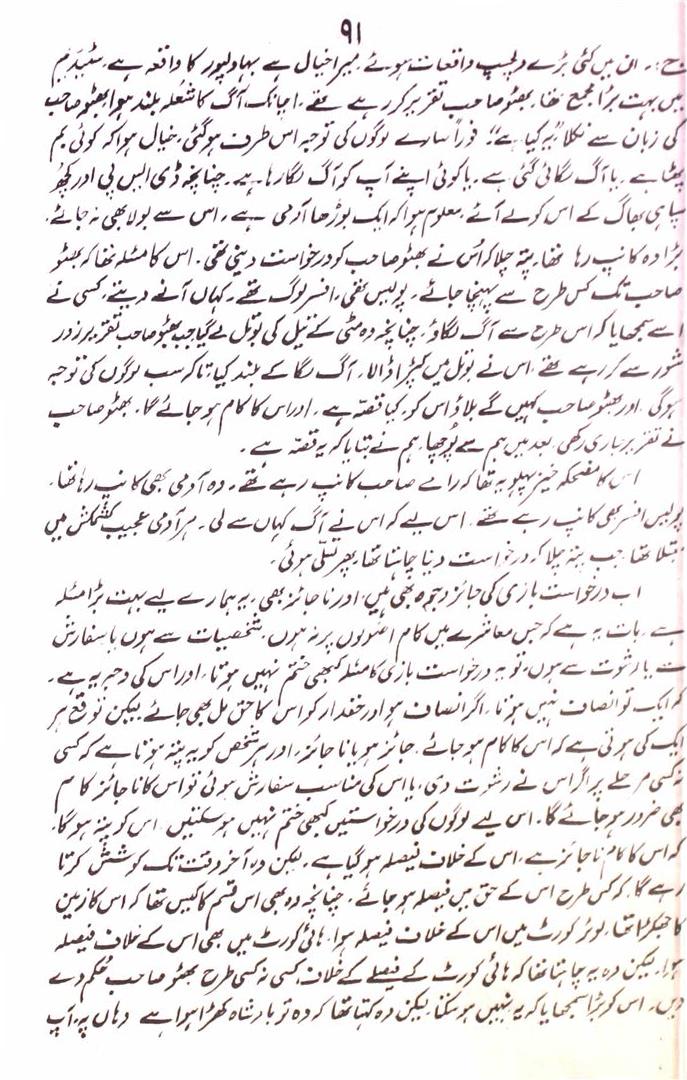 ۹۱
ج: ۔ ان میں کئی بڑے دلچسپ واقعات ہوئے ۔ میرا خیال ہے بہاولپور کا واقعہ ہے ۔ سٹیڈیم
میں بہت بڑا مجمع تھا۔ بھٹو صاحب تقریر کر رہے تھے ۔ اچانک آگ کا شعلہ بلند ہوا بھٹو صاحب
کی زبان سے نکلا "یہ کیا ہے"؟ فوراً سارے لوگوں کی توجہ اس طرف ہو گئی، خیال ہوا کہ کوئی بم
پھٹا ہے ۔ یا آگ لگائی گئی ہے ۔ یا کوئی اپنے آپ کو آگ لگا رہا ہے ۔ چنانچہ ڈی ایس پی اور کچھ
سپاہی بھاگ کے اس کو لے آئے ۔ معلوم ہوا کہ ایک بوڑھا آدمی ہے ۔ اس سے بولا بھی نہ جائے ۔
بڑا وہ کانپ رہا تھا۔ پتہ چلا کہ اُس نے بھٹو صاحب کو درخواست دینی تھی ۔ اس کا مسئلہ تھا کہ بھٹو
صاحب تک کس طرح سے پہنچا جائے ۔ پولیس تھی، افسر لوگ تھے ۔ کہاں آنے دیتے، کسی نے
اسے سمجھایا کہ اس طرح سے آگ لگاؤ ۔ چنانچہ وہ مٹی کے تیل کی بوتل لے گیا جب بھٹو صاحب تقریر زور
شور سے کر رہے تھے ۔ اس نے بوتل میں کپڑا ڈالا ۔ آگ لگا کے بلند کیا تاکہ سب لوگوں کی توجہ
ہو گی ۔ اور بھٹو صاحب کہیں گے بلاؤ اس کو، کیا قصّہ ہے ۔ اور اس کا کام ہو جائے گا ۔ بھٹو صاحب
نے تقریر جاری رکھی بعد میں ہم سے پوچھا۔ ہم نے بتایا کہ یہ قصّہ ہے ۔
اس کا مضحکہ خیز پہلو یہ تھا کہ رامے صاحب کانپ رہے تھے ۔ وہ آدمی بھی کانپ رہا تھا۔
پولیس افسر بھی کانپ رہے تھے ۔ اس لیے کہ اس نے آگ کہاں سے لی ۔ ہر آدمی عجیب کشمکش میں
مبتلا تھا جب پتہ چلا کہ درخواست دینا چاہتا تھا، پھر تسلی ہوئی ۔
اب درخواست بازی کی جائز وجوہ بھی ہیں، اور ناجائز بھی، یہ ہمارے لیے بہت بڑا مسئلہ
ہے ۔ بات یہ ہے کہ جس معاشرے میں کام اصولوں پر نہ ہوں، شخصیات سے ہوں یا سفارش
سے یا رشوت سے ہوں، تو یہ درخواست بازی کا مسئلہ کبھی ختم نہیں ہوتا ۔ اور اس کی وجہ یہ ہے ۔
کہ ایک تو انصاف نہیں ہوتا ۔ اگر انصاف ہو اور حقدار کو اس کا حق مل بھی جائے لیکن توقع ہر
ایک کی ہوتی ہے کہ اس کا کام ہو جائے ۔ جائز ہو یا ناجائز ۔ اور ہر شخص کو یہ پتہ ہوتا ہے کہ کسی
نہ کسی مرحلے پر اگر اس نے رشوت دی، یا اس کی مناسب سفارش ہوئی تو اس کا ناجائز کام
بھی ضرور ہو جائے گا۔ اس لیے لوگوں کی درخواستیں کبھی ختم نہیں ہو سکتیں ۔ اس کو پتہ ہو گا،
کہ اس کا کام ناجائز ہے، اس کے خلاف فیصلہ ہو گیا ہے ۔ لیکن وہ آخر وقت تک کوشش کرتا
رہے گا، کہ کس طرح اس کے حق میں فیصلہ ہو جائے ۔ چنانچہ وہ بھی اس قسم کا کیس تھا کہ اس کا زمین
کا جھگڑا تھا ۔ لوئر کورٹ میں اس کے خلاف فیصلہ ہوا۔ ہائی کورٹ میں بھی اس کے خلاف فیصلہ
ہوا۔ لیکن وہ یہ چاہتا تھا کہ ہائی کورٹ کے فیصلے کے خلاف، کسی نہ کسی طرح بھٹو صاحب حکم دے
دیں ۔ اس کو بڑا سمجھایا کہ یہ نہیں ہو سکتا۔ لیکن وہ کہتا تھا کہ وہ تو بادشاہ کھڑا ہوا ہے وہاں پہ، آپ